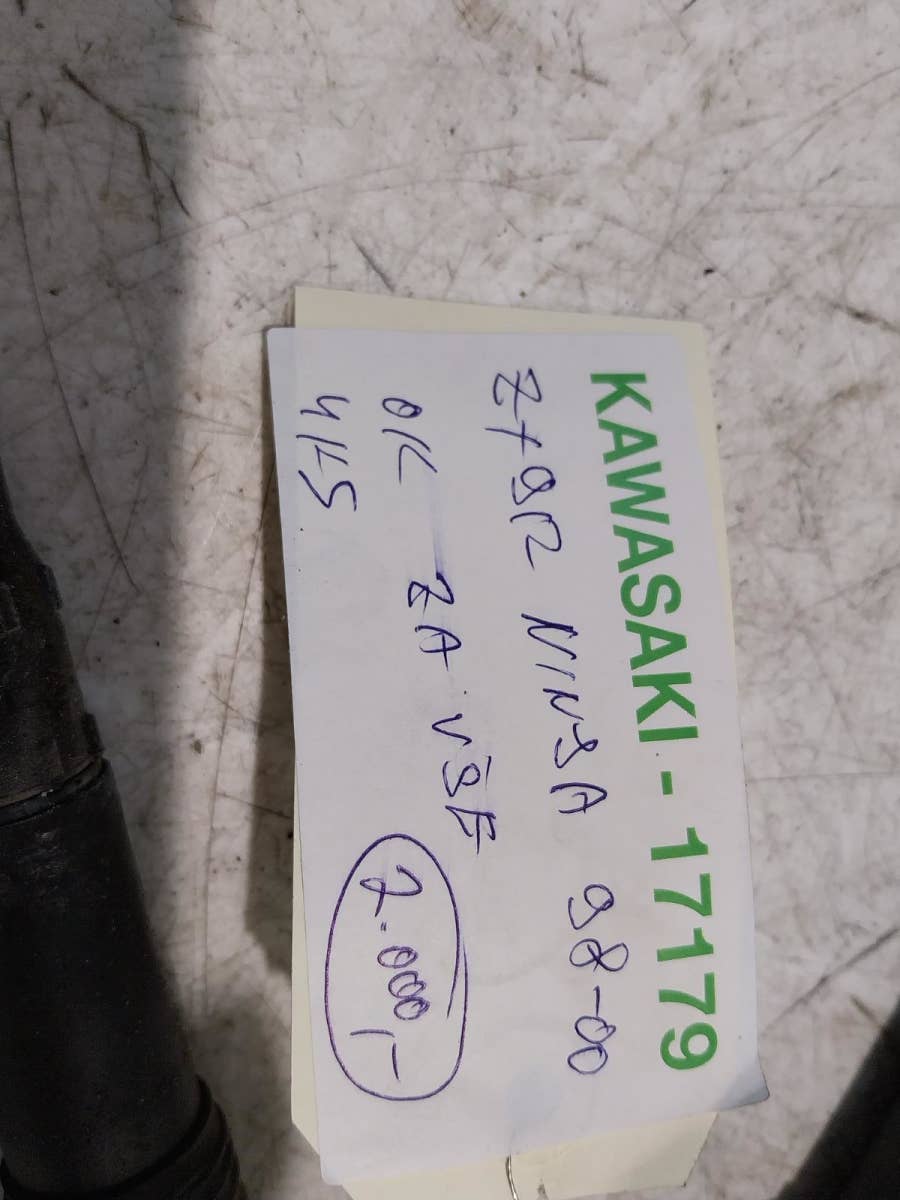 KAWASAKI - 17179
ZX9R NINJA 98-00
OK ZA VŠE
4KS
2.000,-